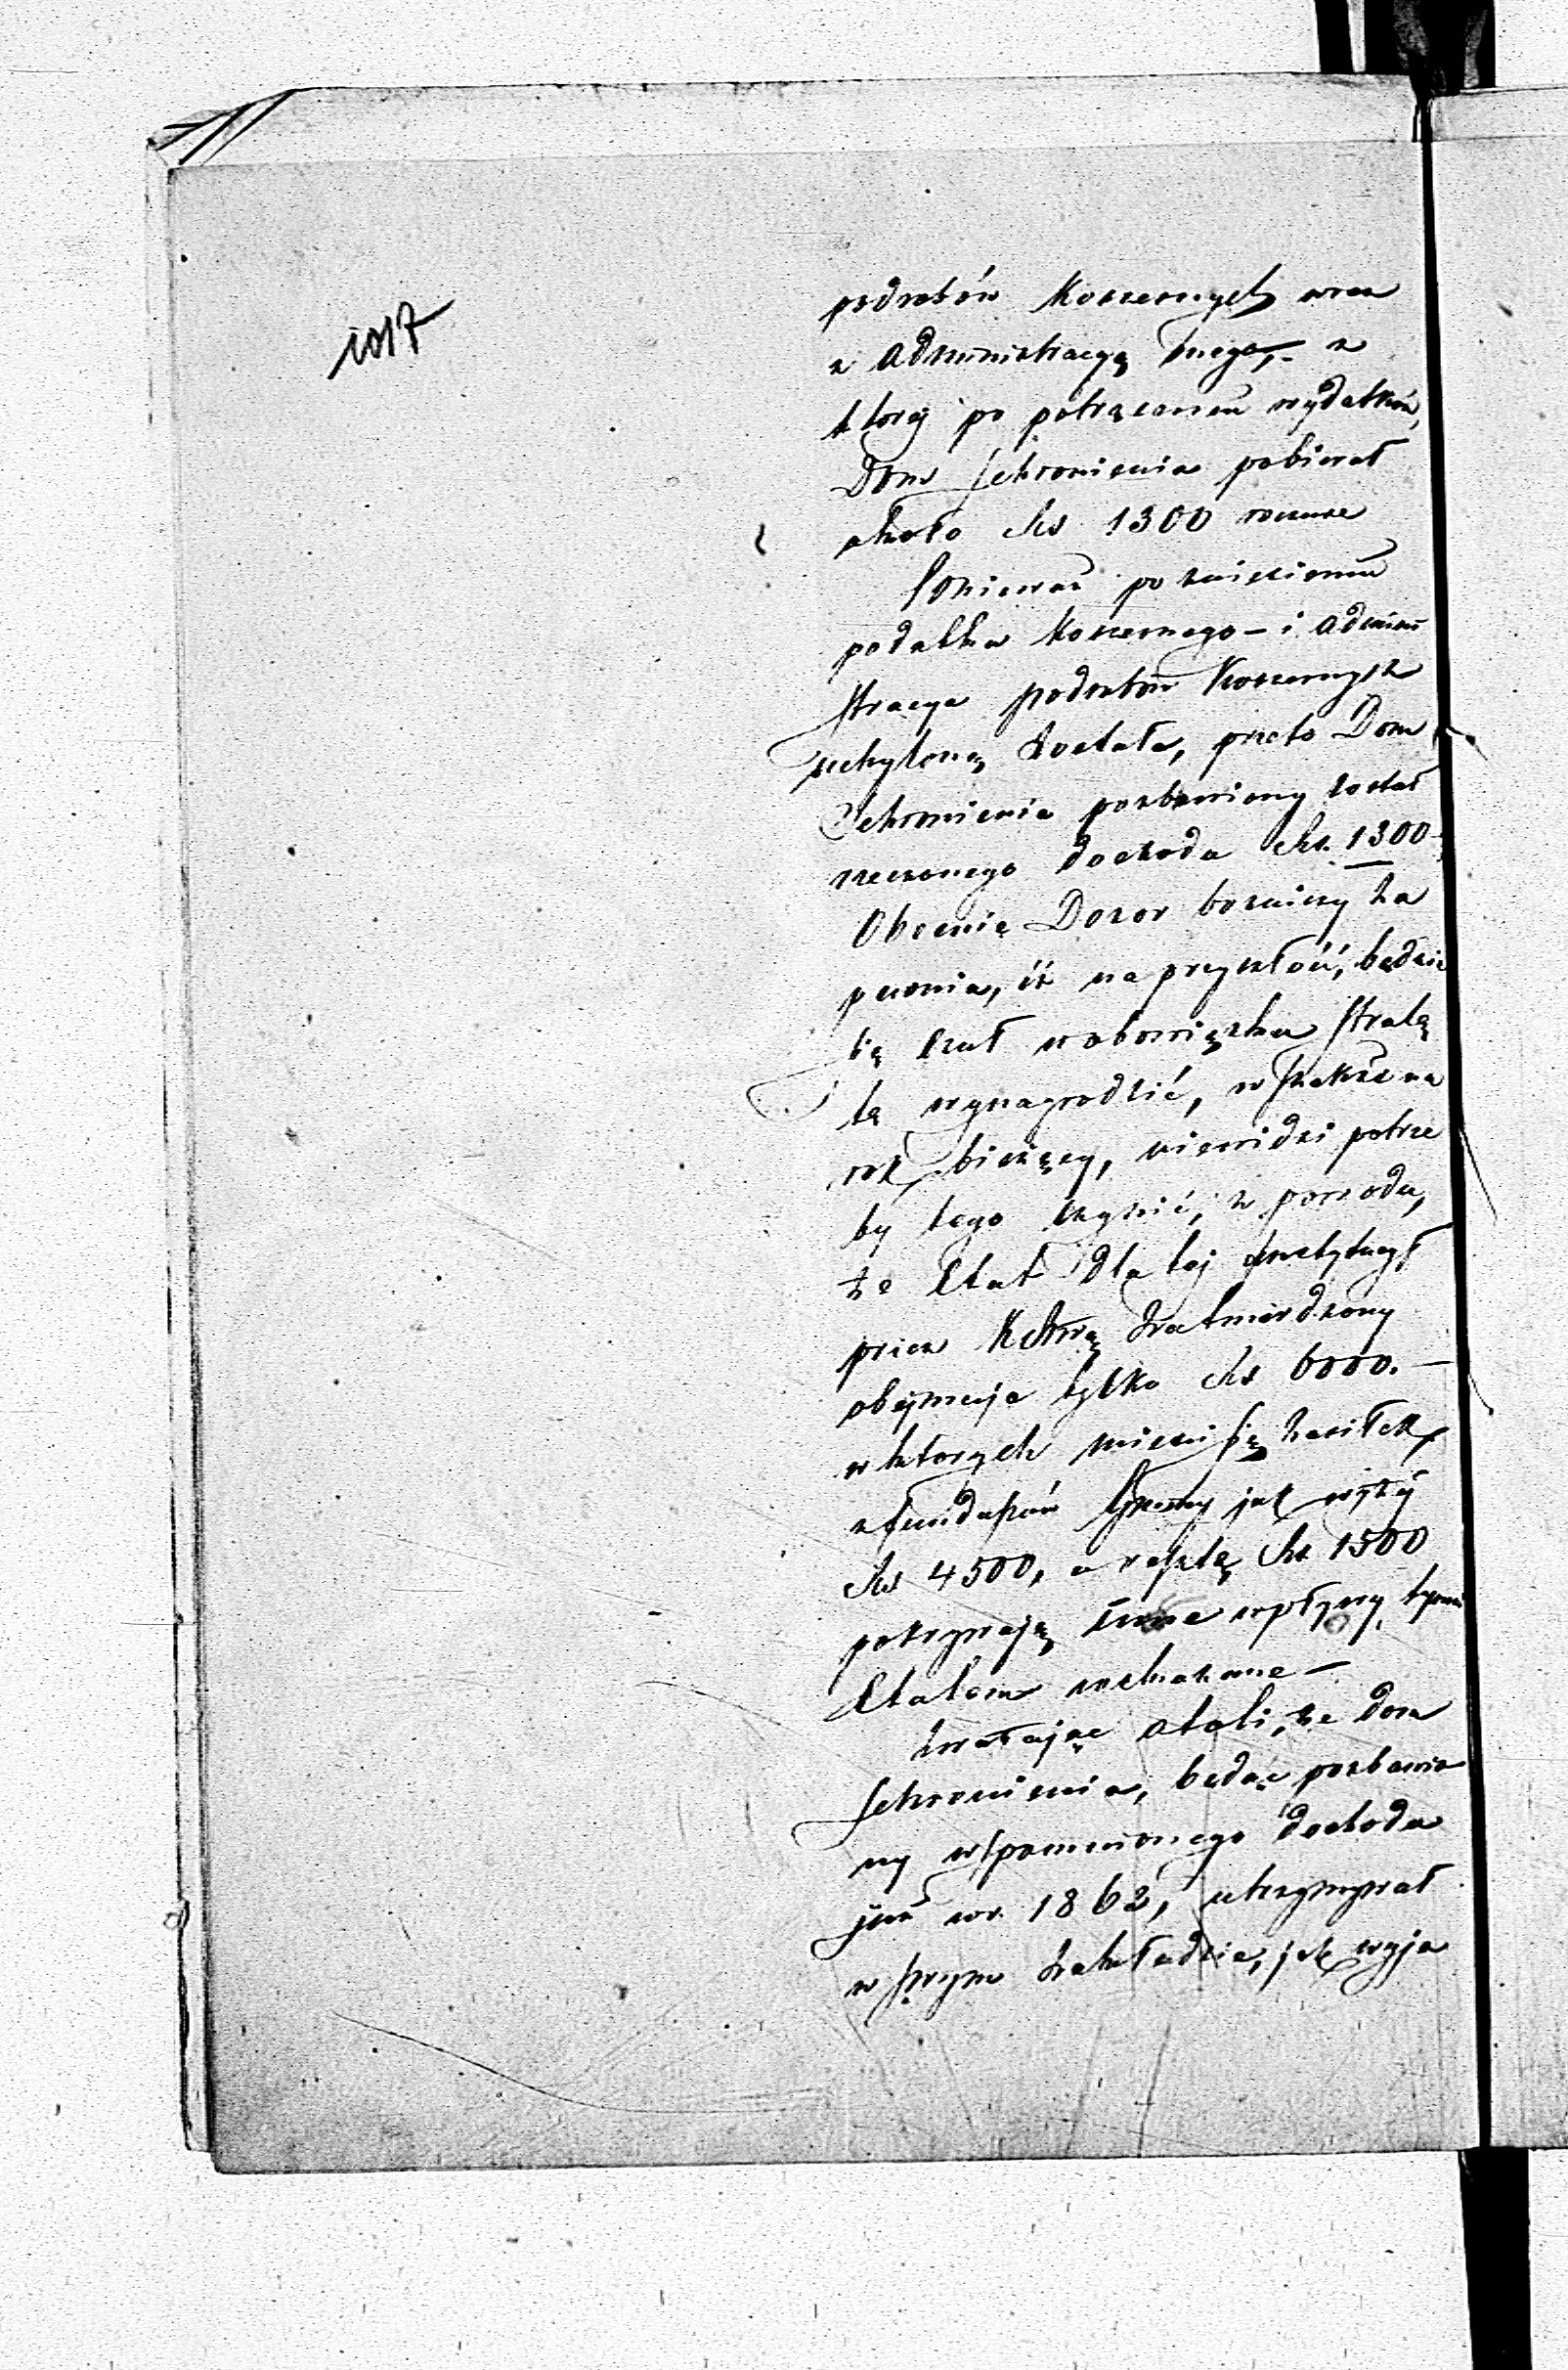 1017
podrobów Koszernych wraz
z Administracyą onego, - z
ktorej po potrąceniu wydatków,
Dom Schronienia pobierał
około Rs 1300 rocznie
Ponieważ po zniesieniu
podatku Koszernego - i Admini
stracya podrobów Koszernych
uchyloną została, przeto Dom
Schronienia pozbawiony został
rzeczonego dochodu Rs. 1300
Obecnie Dozor bozniczy za
pewnia, iż na przyszłość, będzie
się czuł w obowiązku stratę
tę wynagrodzić, wszakże na
rok bieżący, niewidzi potrze
by tego czynić, z powodu,
że Etat dla tej Instytucyi
przez zatwierdzony
obejmuje tylko Rs 6000. -
w ktorych mieści się zasiłek
z funduszów Gminy jak wyżej
Rs 4500, a resztę Rs 1500
pokrywają inne wpływy, tymże
Etatem wskazane -
Zważając atoli, że dom
Schronienia, będąc pozbawio
ny wspomnionego dochodu
już w r. 1862, utrzymywał
w swym Zakładzie, jak wyja